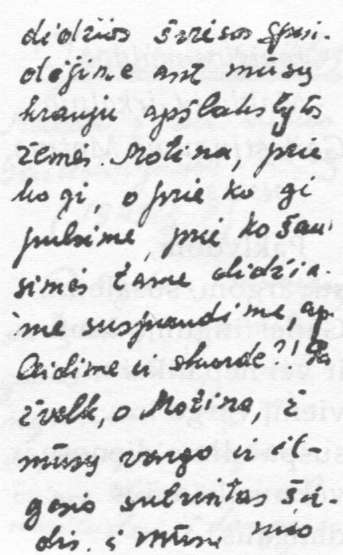 didžios šviesos spin-
dėjime ant mūsų
krauju apšlakstytos
žemės. Motina, prie
ko gi, o prie ko gi
pulsime, prie ko šauk
simės tame didžia-
me susijaudinime, ap
leidime ir skurde?! Pa
žvelk, o Motina, į
mūsų vargo ir il-
gesio suvintas šir-
dis, į mūsų